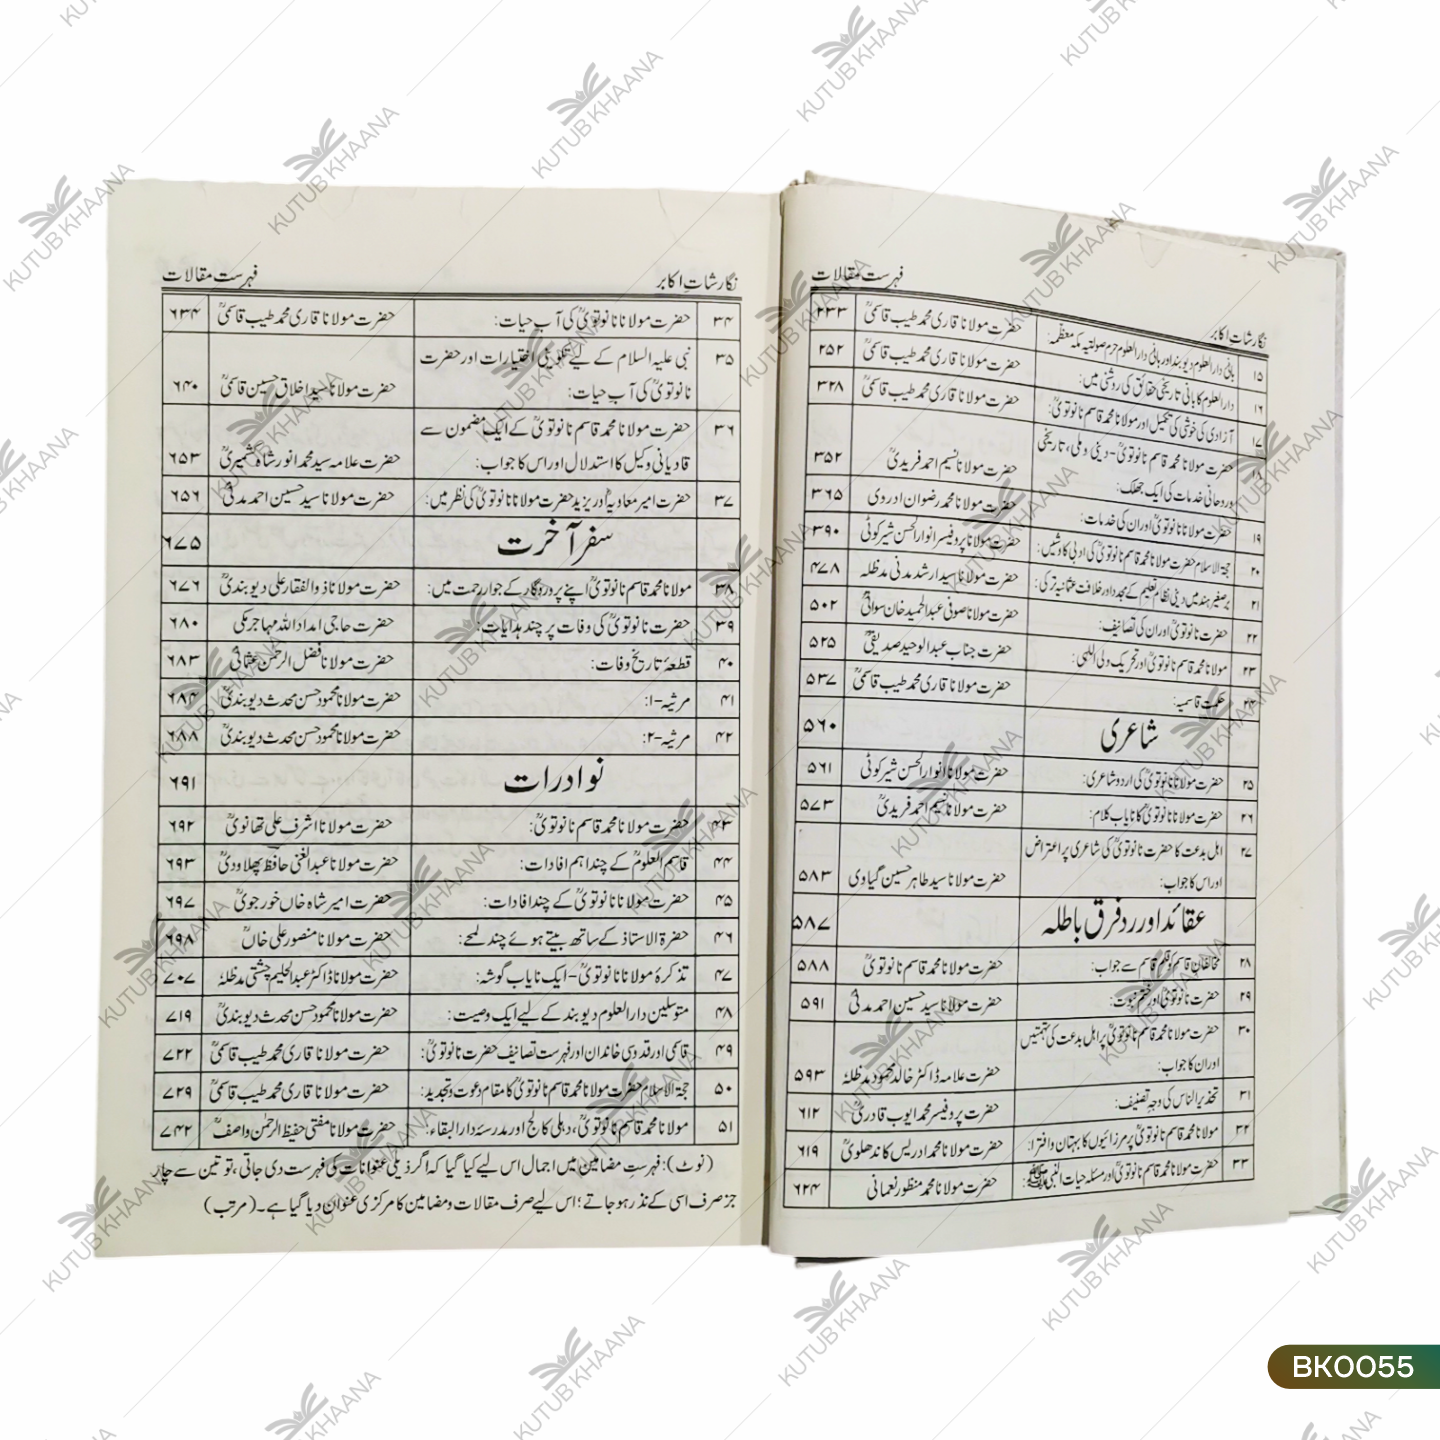 نگارشاتِ اکابر فہرست مقالات
۱۵ بانیٔ دارالعلوم دیوبند اور بانی دارالعلوم حرم صولتیہ مکہ معظّمہ: حضرت مولانا قاری محمد طیب قاسمیؒ ۲۳۳
۱۶ دارالعلوم کا بانی تاریخی حقائق کی روشنی میں: حضرت مولانا قاری محمد طیب قاسمیؒ ۲۵۲
۱۷ آزادی کی خوشی کی تکمیل اور مولانا محمد قاسم نانوتویؒ: حضرت مولانا قاری محمد طیب قاسمیؒ ۳۲۸
۱۸ حضرت مولانا محمد قاسم نانوتویؒ - دینی و ملی، تاریخی
اور روحانی خدمات کی ایک جھلک: حضرت مولانا نسیم احمد فریدیؒ ۳۵۲
۱۹ حضرت مولانا نانوتویؒ اور ان کی خدمات: حضرت مولانا محمد رضوان ادروی ۳۶۵
۲۰ حجۃ الاسلام حضرت مولانا محمد قاسم نانوتویؒ کی ادبی کاوشیں: حضرت مولانا پروفیسر انوار الحسن شیرکوٹی ۳۹۰
۲۱ برصغیر ہند میں دینی نظام تعلیم کے مجدد اور خلافت عثمانیہ ترکی: حضرت مولانا سید ارشد مدنی مدظلہ ۴۷۸
۲۲ حضرت نانوتویؒ اور ان کی تصانیف: حضرت مولانا صوفی عبدالحمید خان سواتیؒ ۵۰۲
۲۳ مولانا محمد قاسم نانوتویؒ اور تحریک ولی اللہی: حضرت جناب عبدالوحید صدیقیؒ ۵۲۵
۲۴ حکمت قاسمیہ: حضرت مولانا قاری محمد طیب قاسمیؒ ۵۳۷
شاعری ۵۶۰
۲۵ حضرت مولانا نانوتویؒ کی اردو شاعری: حضرت مولانا انوار الحسن شیرکوٹی ۵۶۱
۲۶ حضرت مولانا نانوتویؒ کا نایاب کلام: حضرت مولانا نسیم احمد فریدیؒ ۵۷۳
۲۷ اہل بدعت کا حضرت نانوتویؒ کی شاعری پر اعتراض
اور اس کا جواب: حضرت مولانا سید طاہر حسین گیاوی ۵۸۳
عقائد اور ردِ فرق باطلہ ۵۸۷
۲۸ مخالفانِ قاسم کو قلم قاسم سے جواب: حضرت مولانا محمد قاسم نانوتویؒ ۵۸۸
۲۹ حضرت نانوتویؒ اور ختم نبوت: حضرت مولانا سید حسین احمد مدنیؒ ۵۹۱
۳۰ حضرت مولانا محمد قاسم نانوتویؒ پر اہل بدعت کی تہمتیں
اور ان کا جواب: حضرت علامہ ڈاکٹر خالد محمود مدظلہٗ ۵۹۳
۳۱ تحذیر الناس کی وجہِ تصنیف: حضرت پروفیسر محمد ایوب قادریؒ ۶۱۲
۳۲ مولانا محمد قاسم نانوتویؒ پر مرزائیوں کا بہتان و افترا: حضرت مولانا محمد ادریس کاندھلویؒ ۶۱۹
۳۳ حضرت مولانا محمد قاسم نانوتویؒ اور مسئلہ حیات النبی ﷺ: حضرت مولانا محمد منظور نعمانی ۶۲۴
نگارشاتِ اکابر فہرست مقالات
۳۴ حضرت مولانا نانوتویؒ کی آب حیات: حضرت مولانا قاری محمد طیب قاسمیؒ ۶۳۴
۳۵ نبی علیہ السلام کے لیے تکوینی اختیارات اور حضرت
نانوتویؒ کی آب حیات: حضرت مولانا سید اخلاق حسین قاسمیؒ ۶۴۰
۳۶ حضرت مولانا محمد قاسم نانوتویؒ کے ایک مضمون سے
قادیانی وکیل کا استدلال اور اس کا جواب: حضرت علامہ سید محمد انور شاہ کشمیریؒ ۶۵۳
۳۷ حضرت امیر معاویہؓ اور یزید حضرت مولانا نانوتویؒ کی نظر میں: حضرت مولانا سید حسین احمد مدنیؒ ۶۵۶
سفرِ آخرت ۶۷۵
۳۸ مولانا محمد قاسم نانوتویؒ اپنے پروردگار کے جوار رحمت میں: حضرت مولانا ذوالفقار علی دیوبندیؒ ۶۷۶
۳۹ حضرت نانوتویؒ کی وفات پر چند ہدایات: حضرت حاجی امداد اللہ مہاجر مکی ۶۸۰
۴۰ قطعۂ تاریخ وفات: حضرت مولانا فضل الرحمٰن عثمانیؒ ۶۸۳
۴۱ مرثیہ-۱: حضرت مولانا محمود حسن محدث دیوبندیؒ ۶۸۴
۴۲ مرثیہ-۲: حضرت مولانا محمود حسن محدث دیوبندیؒ ۶۸۸
نوادرات ۶۹۱
۴۳ حضرت مولانا محمد قاسم نانوتویؒ: حضرت مولانا اشرف علی تھانویؒ ۶۹۲
۴۴ قاسم العلومؒ کے چند اہم افادات: حضرت مولانا عبدالغنی حافظ پھلاودیؒ ۶۹۳
۴۵ حضرت مولانا نانوتویؒ کے چند افادات: حضرت امیر شاہ خاں خورجویؒ ۶۹۷
۴۶ حضرۃ الاستاذ کے ساتھ بیتے ہوئے چند لمحے: حضرت مولانا منصور علی خاںؒ ۶۹۸
۴۷ تذکرۂ مولانا نانوتویؒ - ایک نایاب گوشہ: حضرت مولانا ڈاکٹر عبدالحلیم چشتی مدظلہٗ ۷۰۷
۴۸ متوسلین دارالعلوم دیوبند کے لیے ایک وصیت: حضرت مولانا محمود حسن محدث دیوبندیؒ ۷۱۹
۴۹ قاسمی اور قدوسی خاندان اور فہرست تصانیف حضرت نانوتویؒ: حضرت مولانا قاری محمد طیب قاسمیؒ ۷۲۲
۵۰ حجۃ الاسلام حضرت مولانا محمد قاسم نانوتویؒ کا مقام دعوت و تجدید: حضرت مولانا قاری محمد طیب قاسمیؒ ۷۲۹
۵۱ مولانا محمد قاسم نانوتویؒ، دہلی کالج اور مدرسۂ دارالبقاء: حضرت مولانا مفتی حفیظ الرحمٰن واصفؒ ۷۴۲
(نوٹ): فہرستِ مضامین میں اجمال اس لیے کیا گیا کہ اگر ذیلی عنوانات کی فہرست دی جاتی، تو تین سے چار
جز صرف اسی کے نذر ہو جاتے؛ اس لیے صرف مقالات و مضامین کا مرکزی عنوان دیا گیا ہے۔ (مرتب)
KUTUB KHAANA
BK0055